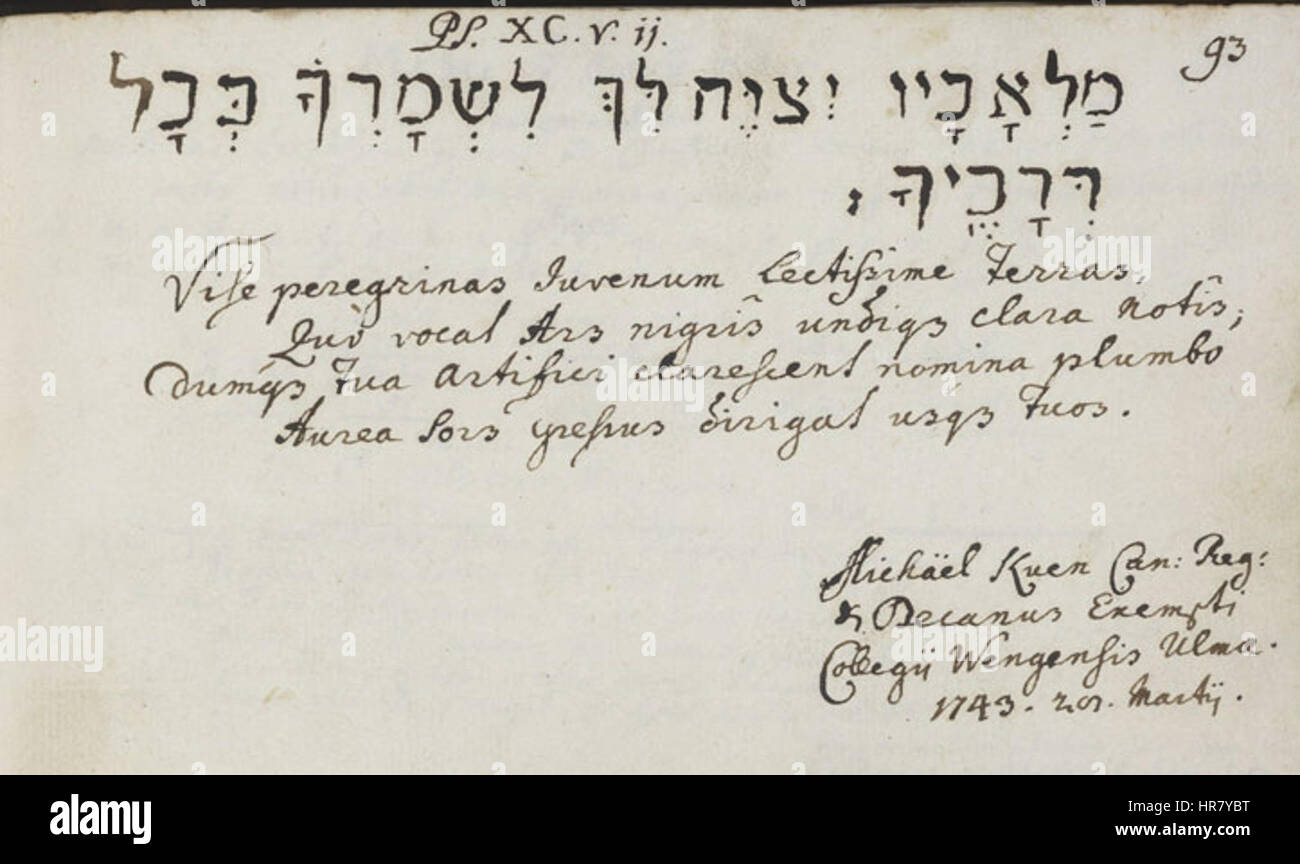 Ps. XC. v. ij.
93
מַלְאָכָיו יְצַוֶּה לָּךְ לִשְׁמָרְךָ בְּכָל
דְּרָכֶיךָ׃
Vise peregrinas Iuvenum Lectissime Terras,
Quò vocat Ars nigrîs undiqꝫ clara Notîs;
Dumqꝫ Tua Artifici clarescent nomina plumbo
Aurea Sors gressus dirigat usqꝫ Tuos.
Michäel Kuen Can: Reg:
& Decanus Exempti
Collegij Wengensis Ulmæ.
1743. Martij.
alamy stock photo
HR7YBT
www.alamy.com